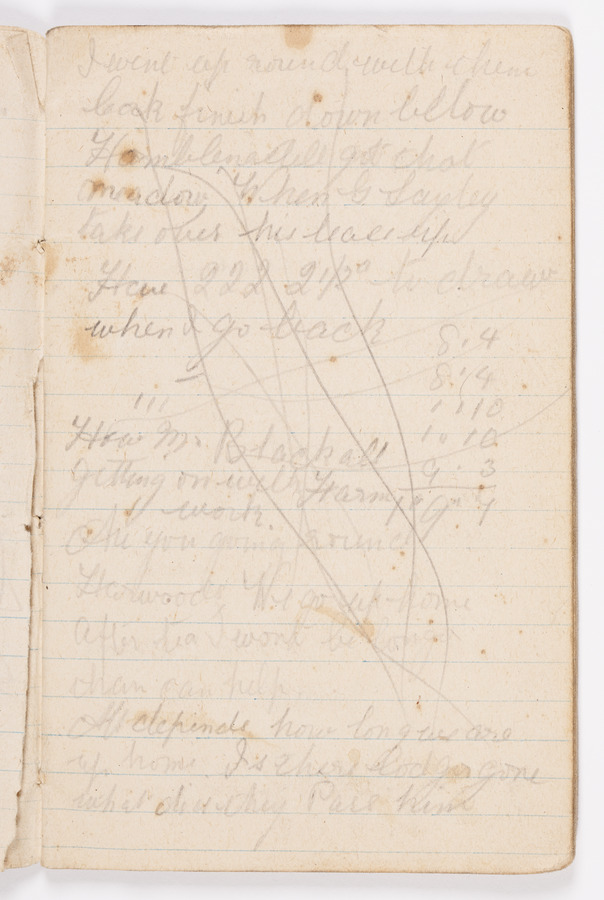 I went up round with them
back finish down bellow
got that
meadow When G Sayley
take over his
Have 222 2 to draw
when I go back
8 . 4
8 . 4
1 " 10
" ' "
1 " 10
How Mr Blackall
9 . 3
getting on with Farm
1 " 9 " 7
work
Are you going round
We go up home
After tea I wont be long
than can help
All depends how long we are
up home Is there gone
what does they